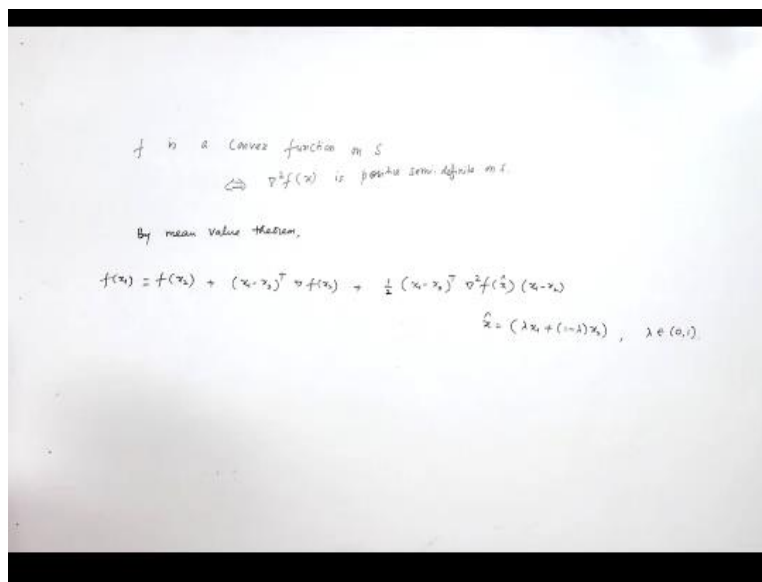 f is a convex function on S
⇔ ∇²f(x) is positive semi-definite on S.
By mean value theorem,
f(x₁) = f(x₂) + (x₁-x₂)ᵀ ∇f(x₂) + ½ (x₁-x₂)ᵀ ∇²f(x̂) (x₁-x₂)
x̂ = (λx₁ + (1-λ)x₂), λ ∈ (0,1).